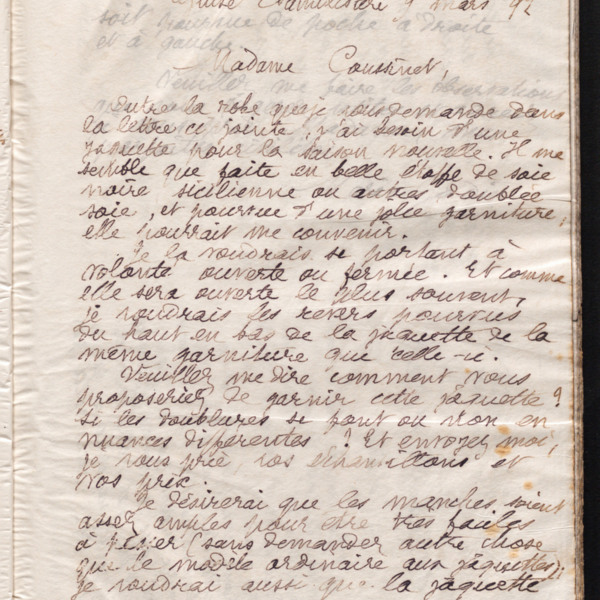 9 mars 92
Madame Coussinet,
Outre la robe que je vous demande dans
la lettre ci jointe, j'ai besoin d'une
jaquette pour la saison nouvelle. Il me
semble que faite en belle étoffe de soie
noire sicilienne ou autres doublée
soie, et pourvue d'une jolie garniture,
elle pourrait me convenir.
Je la voudrais se portant à
volonté ouverte ou fermée. Et comme
elle sera ouverte le plus souvent,
je voudrais les revers pourvus
du haut en bas de la jaquette de la
même garniture que celle-ci.
Veuillez me dire comment vous
proposeriez de garnir cette jaquette ?
Si les doublures se font ou non en
nuances différentes ? Et envoyez moi,
je vous prie, vos échantillons et
vos prix.
Je désirerai que les manches soient
assez amples pour être très faciles
à (sans demander autre chose
que le modèle ordinaire aux jaquettes);
je voudrai aussi que la jaquette